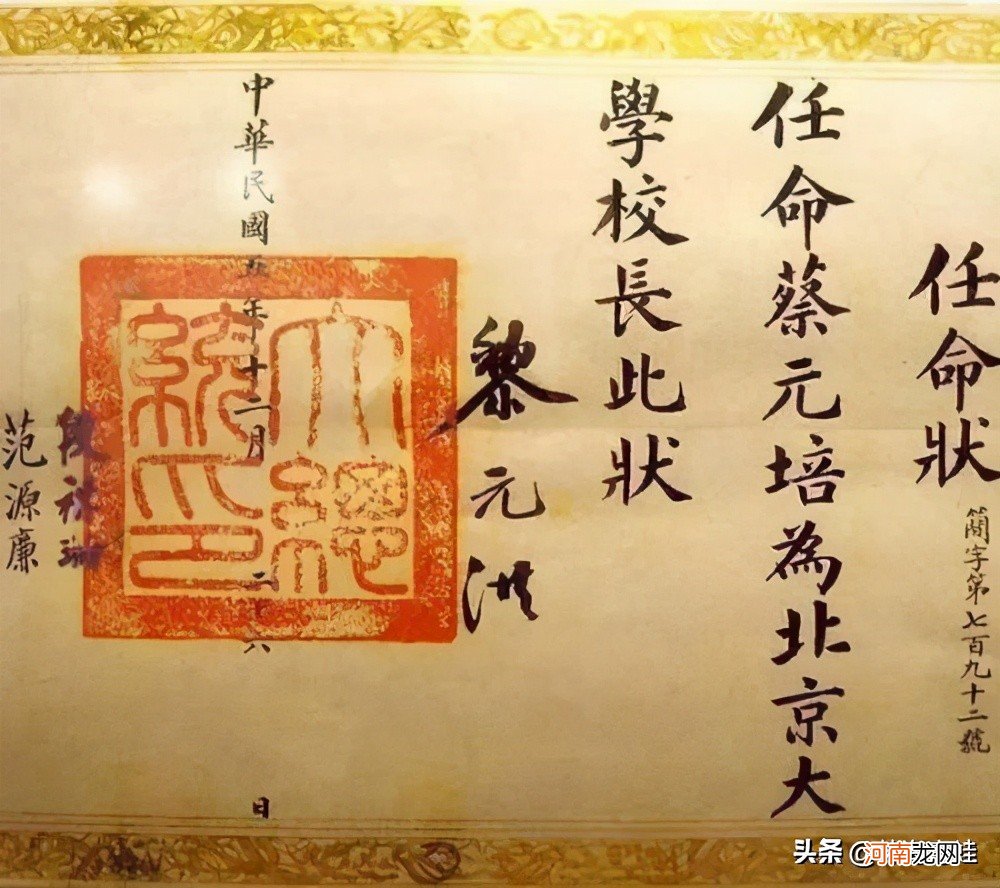 任命狀
簡字第七百九十二號
任命蔡元培為北京大
學校長此狀
黎元洪
大總
統印
中華民國五年十二月二十六日
段祺瑞
范源廉
头条 @河南龙网